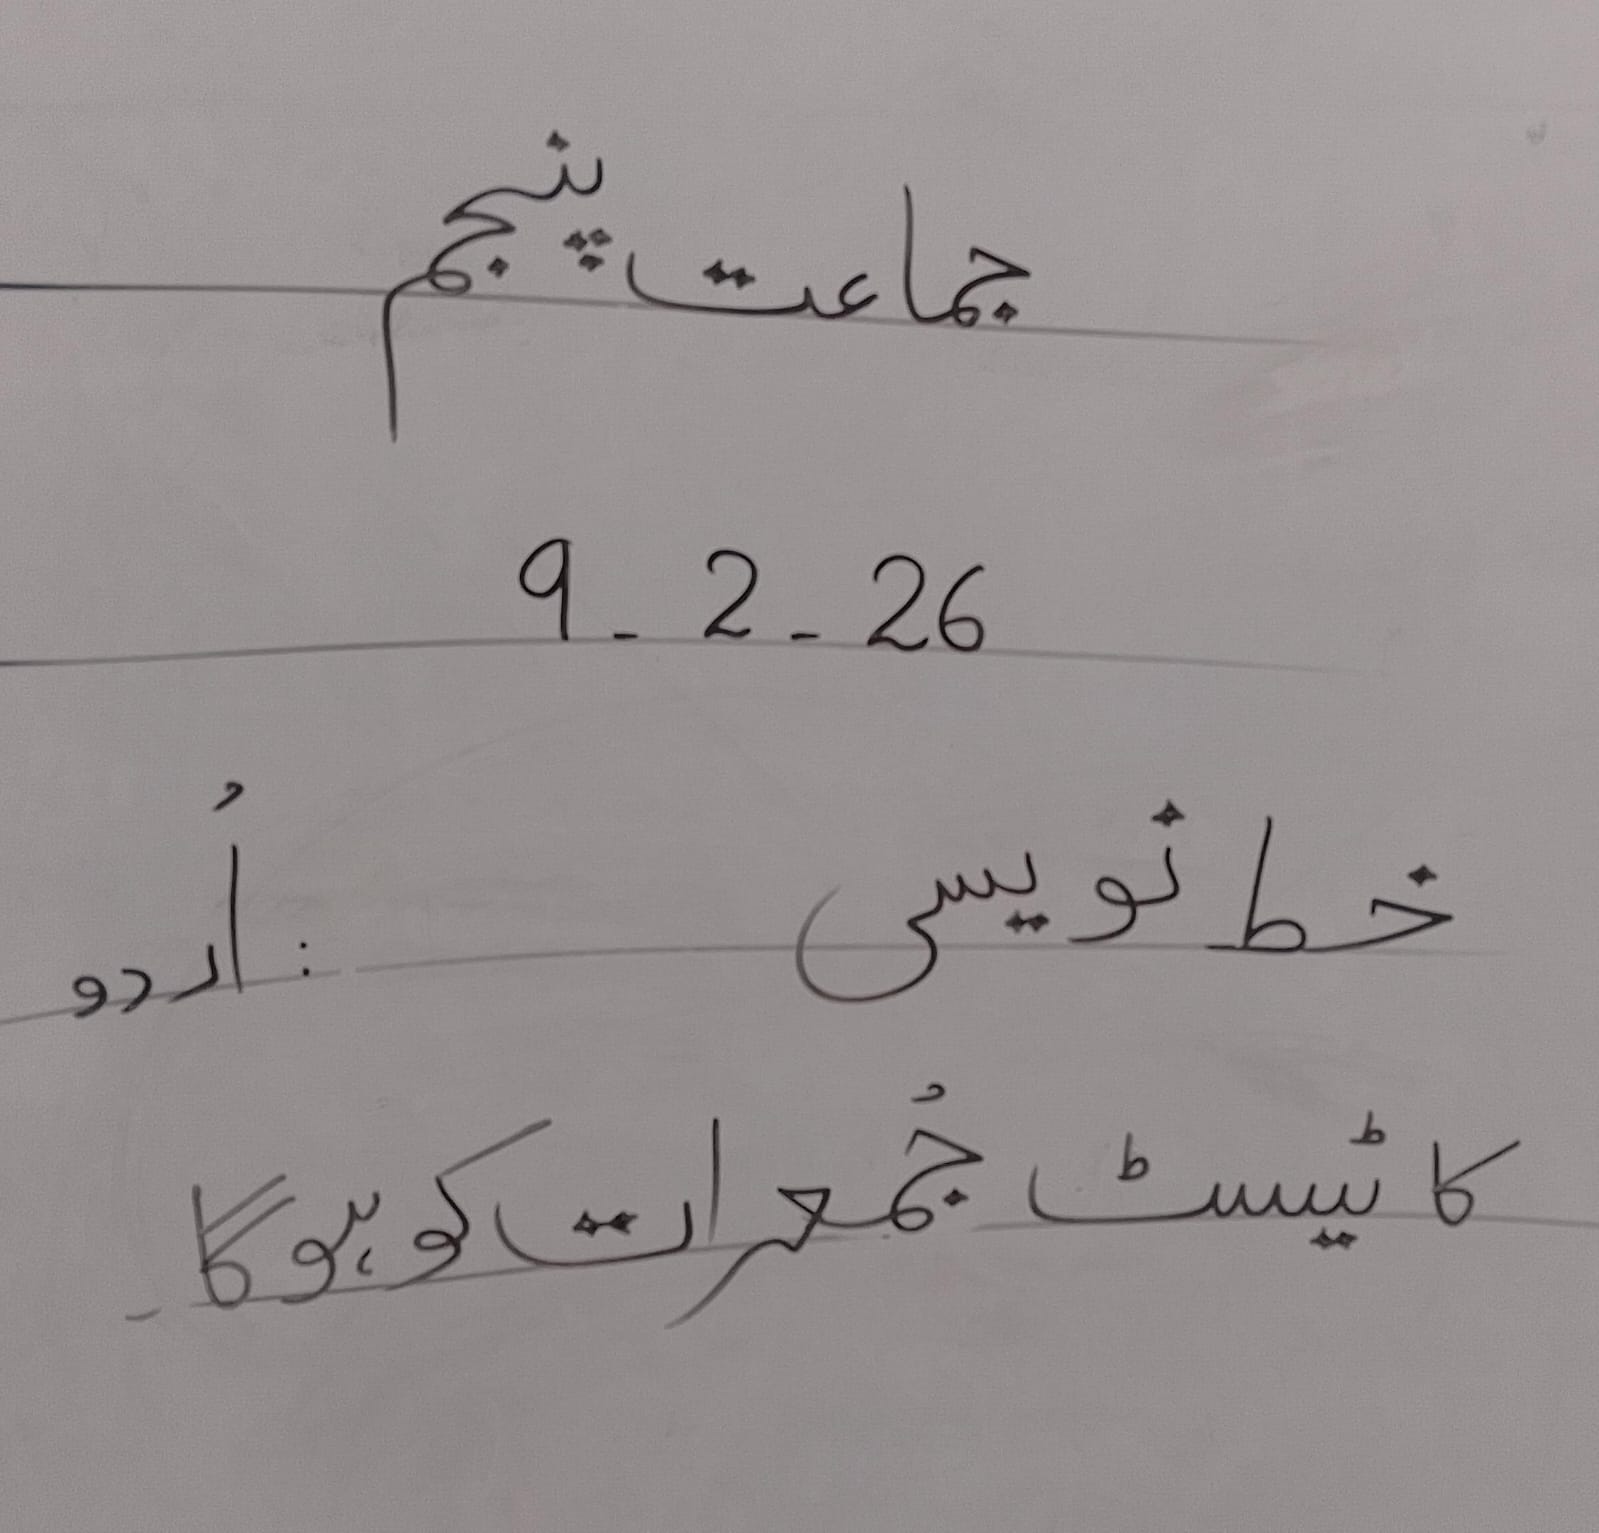 جماعت پنجم
9-2-26
خط نویسی :اُردو
کا ٹیسٹ جُمعرات کو ہو گا۔